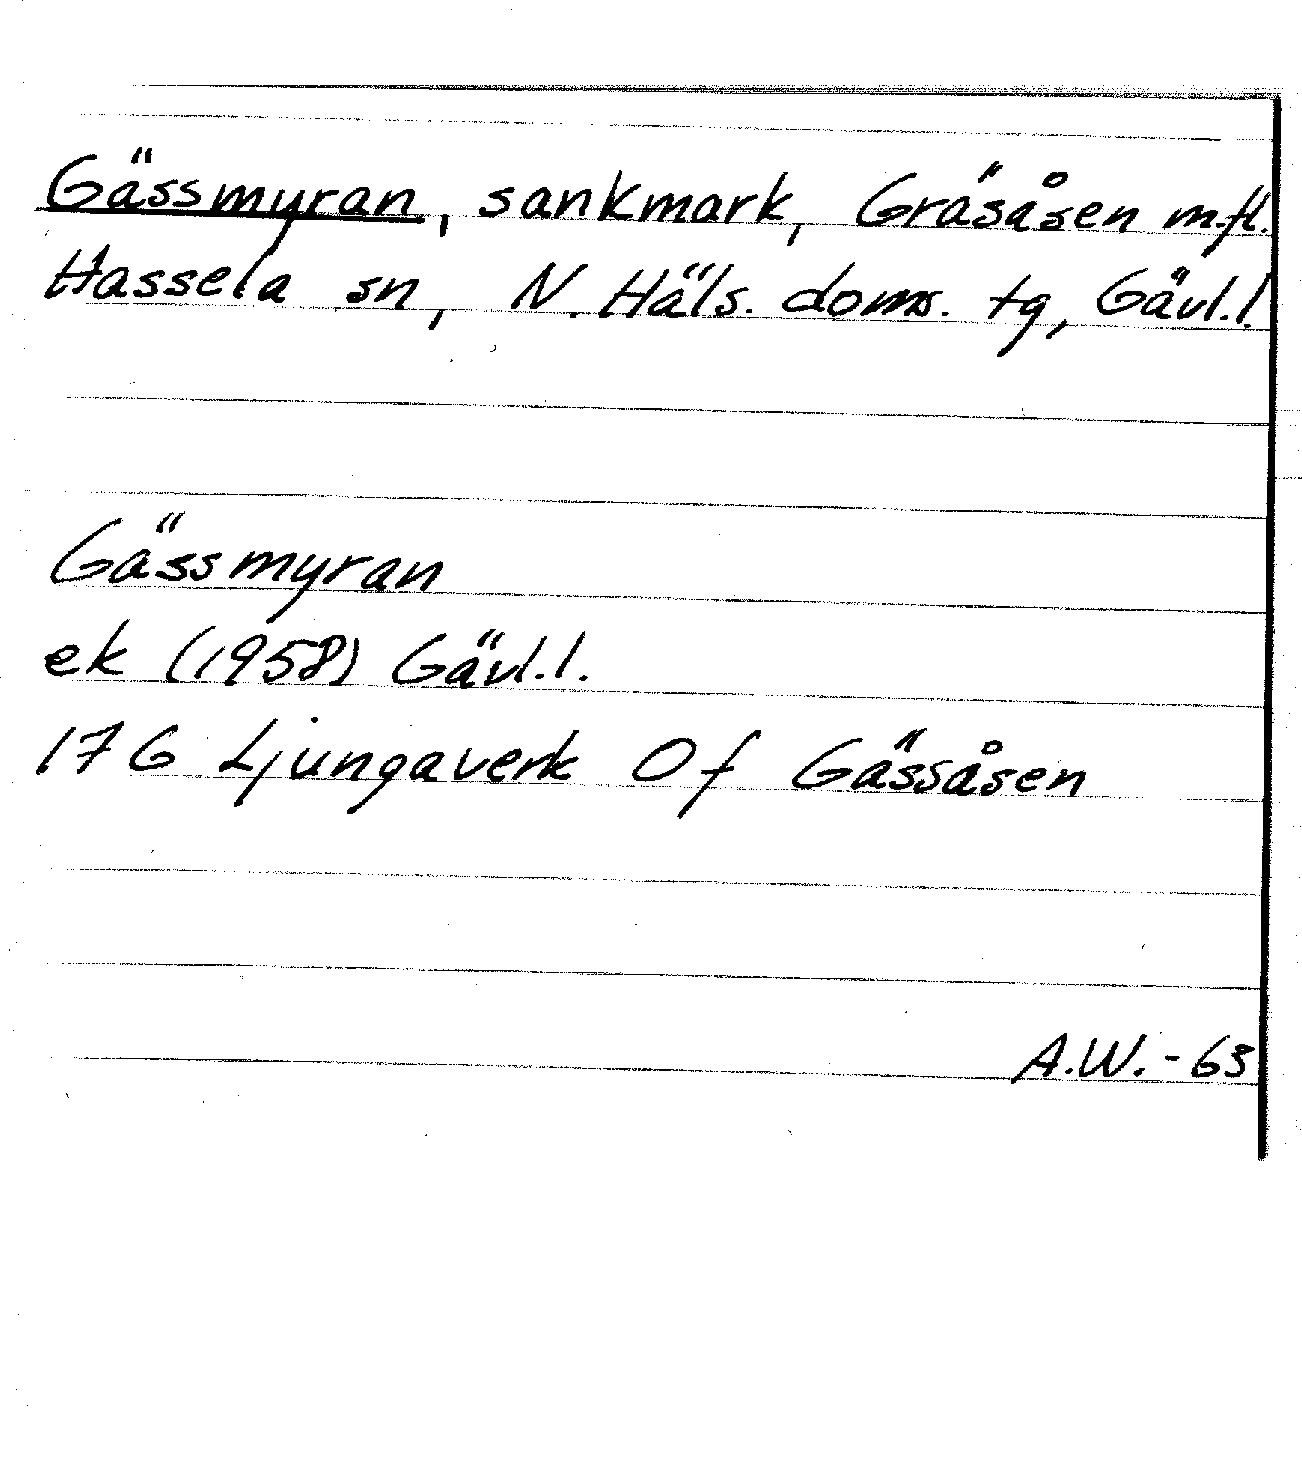 Gässmyran, sankmark, Gräsåsen m.fl.
Hassela sn, N. Häls. doms. tg, Gävl.l.
Gässmyran
ek (1958) Gävl.l.
17G Ljungaverk Of Gässåsen
A.W.-63